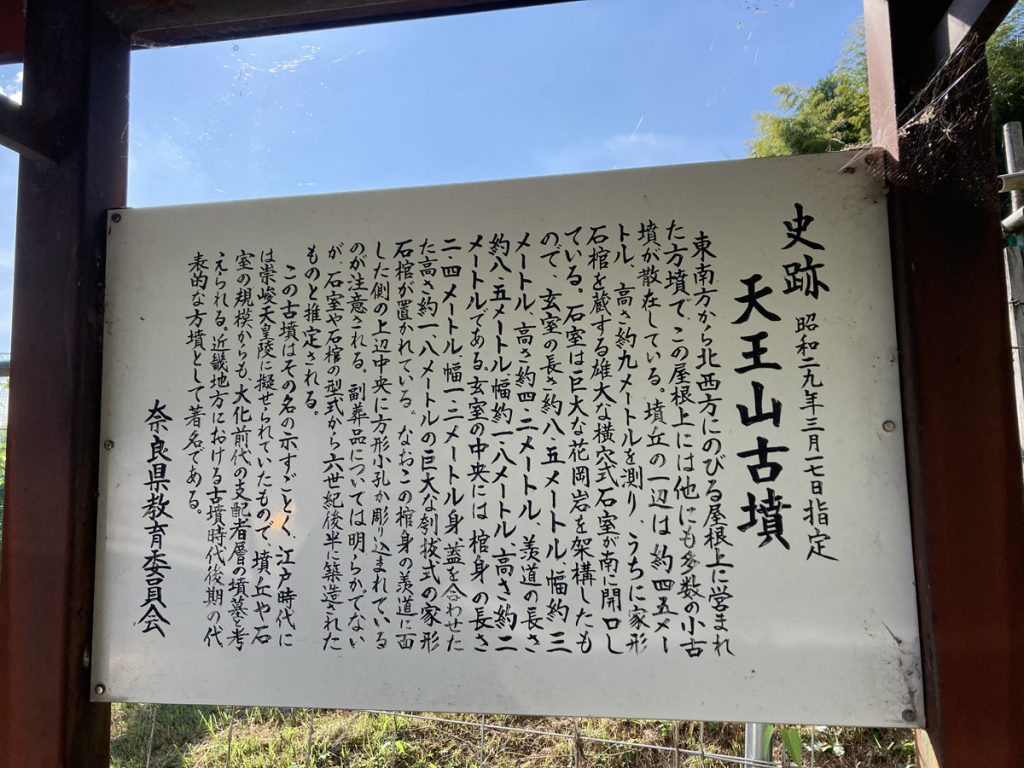 史跡 昭和二九年三月一七日指定
天王山古墳
東南方から北西方にのびる屋根上に営まれ
た方墳で、この屋根上には他にも多数の小古
墳が散在している。墳丘の一辺は約四五メー
トル、高さ約九メートルを測り、うちに家形
石棺を蔵する雄大な横穴式石室が南に開口し
ている。石室は巨大な花岡岩を架構したも
ので、玄室の長さ約八・五メートル、幅約三
メートル、高さ約四・二メートル、羨道の長さ
約八・五メートル、幅約一・八メートル、高さ約二
メートルである。玄室の中央には棺身の長さ
二・四メートル、幅一・二メートル、身、蓋を合わせた
た高さ約一・八メートルの巨大な刳抜式の家形
石棺が置かれている。なおこの棺身の羨道に面
した側の上辺中央に方形小孔が彫り込まれている
のが注意される。副葬品については明らかでない
が、石室や石棺の型式から六世紀後半に築造された
ものと推定される。
この古墳はその名の示すごとく、江戸時代に
は崇峻天皇陵に擬せられていたもので、墳丘や石
室の規模からも、大化前代の支配者層の墳墓と考
えられる。近畿地方における古墳時代後期の代
表的な方墳として著名である。
奈良県教育委員会